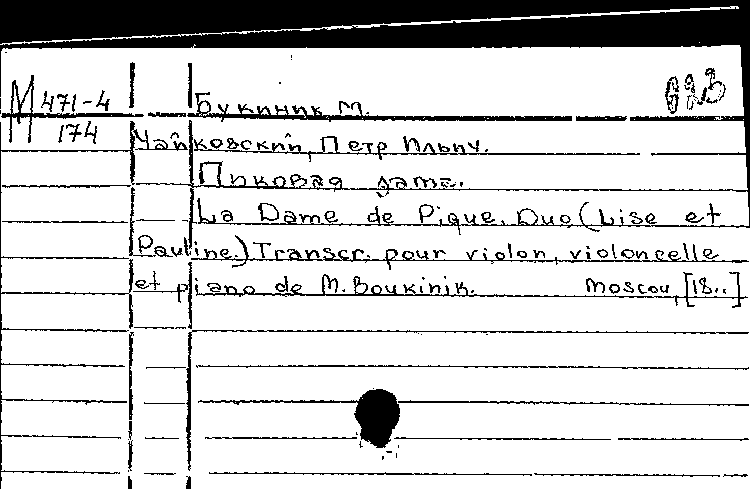 М 471-4 Букиник, М.
174 Чайковский, Петр Ильич.
Пиковая дама.
La Dame de Pique. Duo (Lise et
Pauline.) Transcr. pour violon, violoncelle
et piano de M. Boukinik. Moscou, [18..]